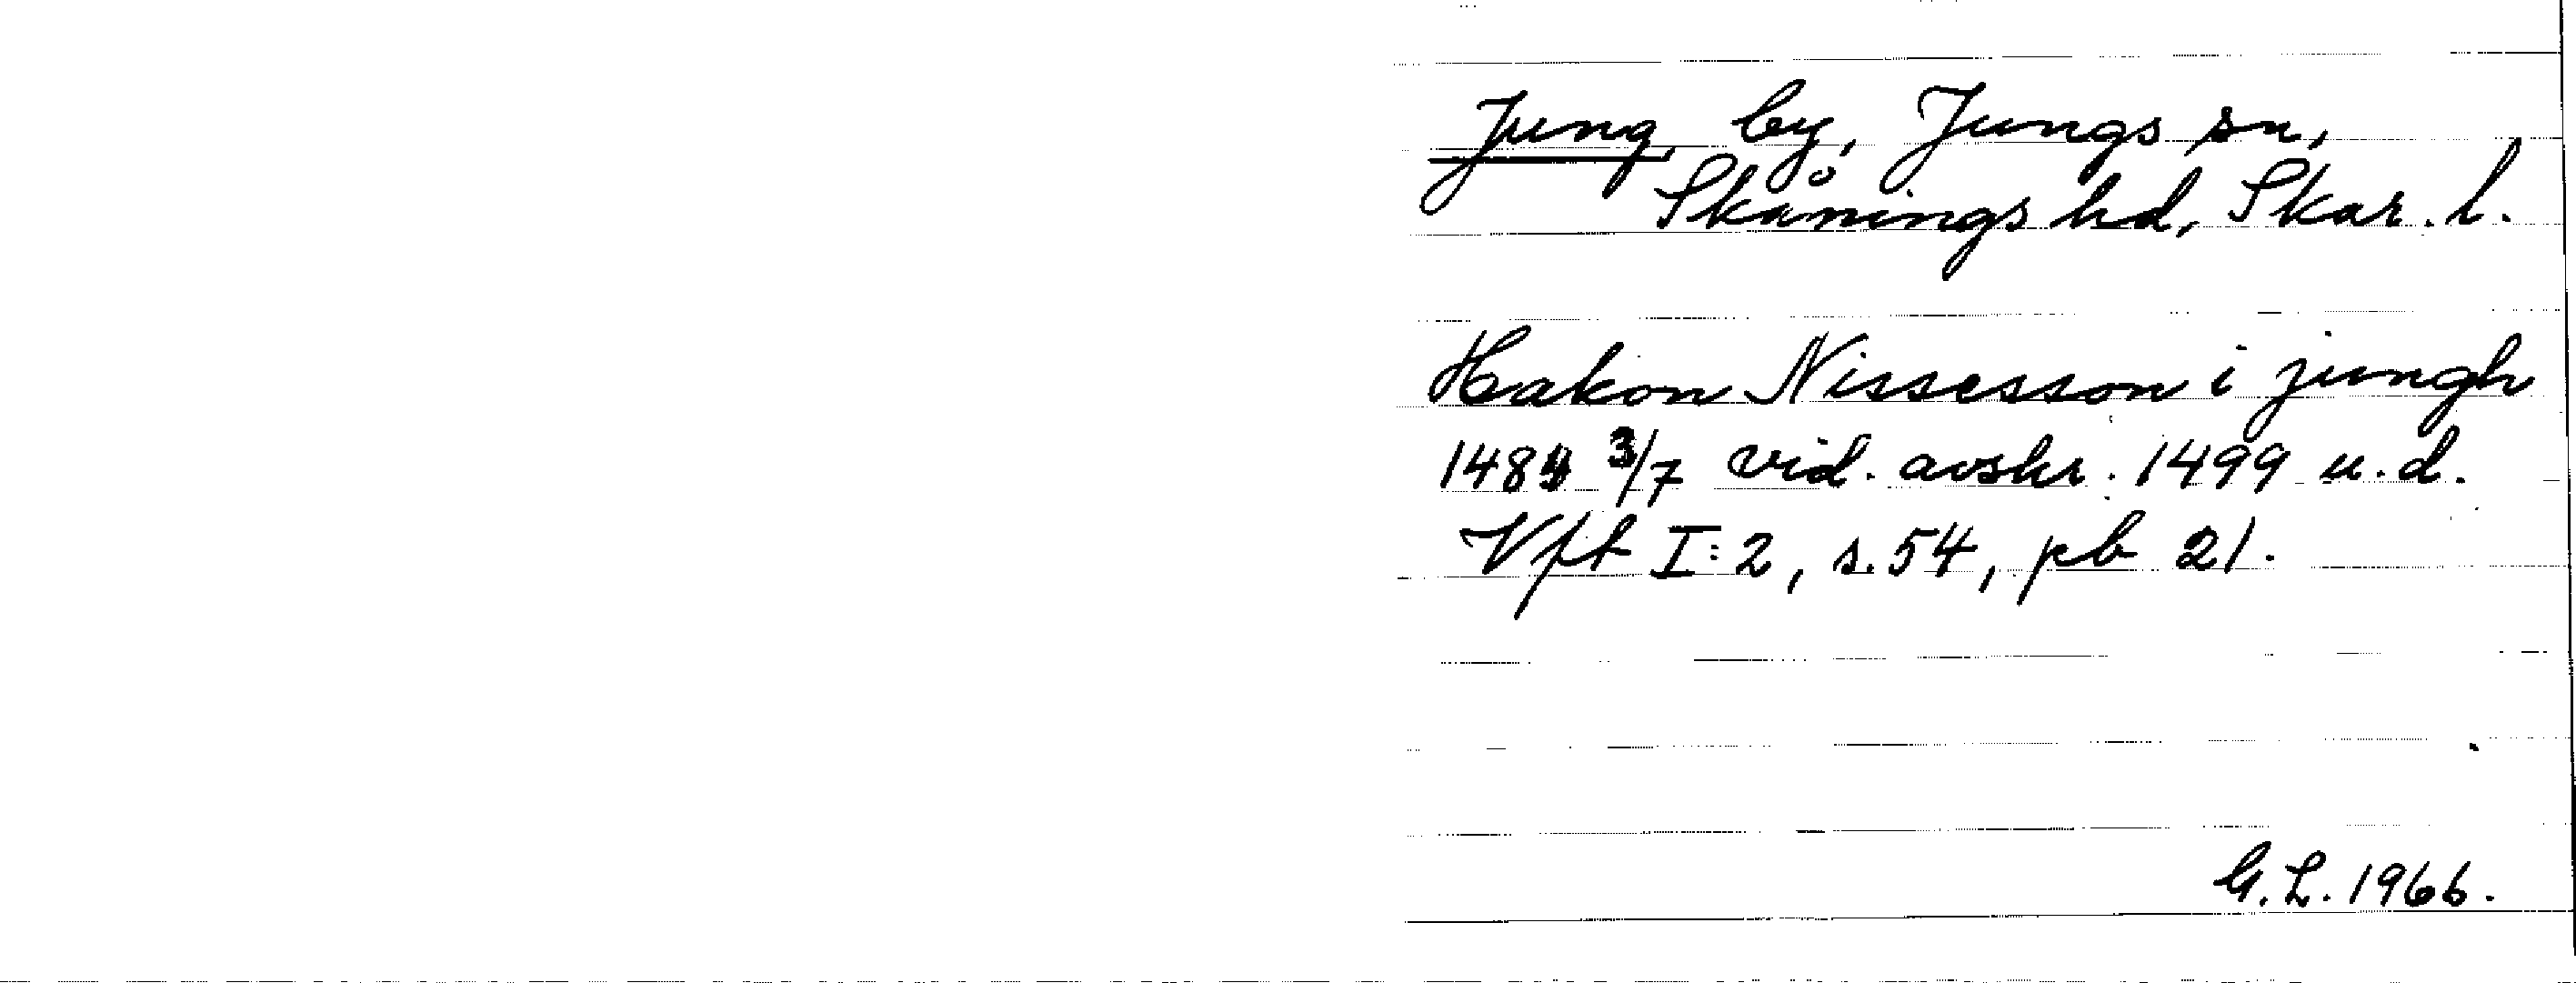 Jung, by, Jungs sn,
Skånings hd, Skar. l.
Hakon Nissesson i jungh
1484 3/7 vid. avskr. 1499 u.d.
Vft I:2, s. 54, pb 21.
G.L. 1966.